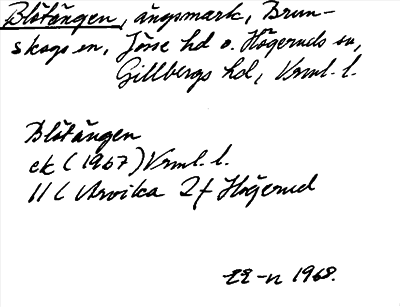 Blötängen, ängsmark, Brun-
skogs sn, Jösse hd o. Högeruds sn,
Gillbergs hd, Vrml. l.
Blötängen
ek (1967) Vrml. l.
11 C Arvika 2f Högerud
22-11 1968.